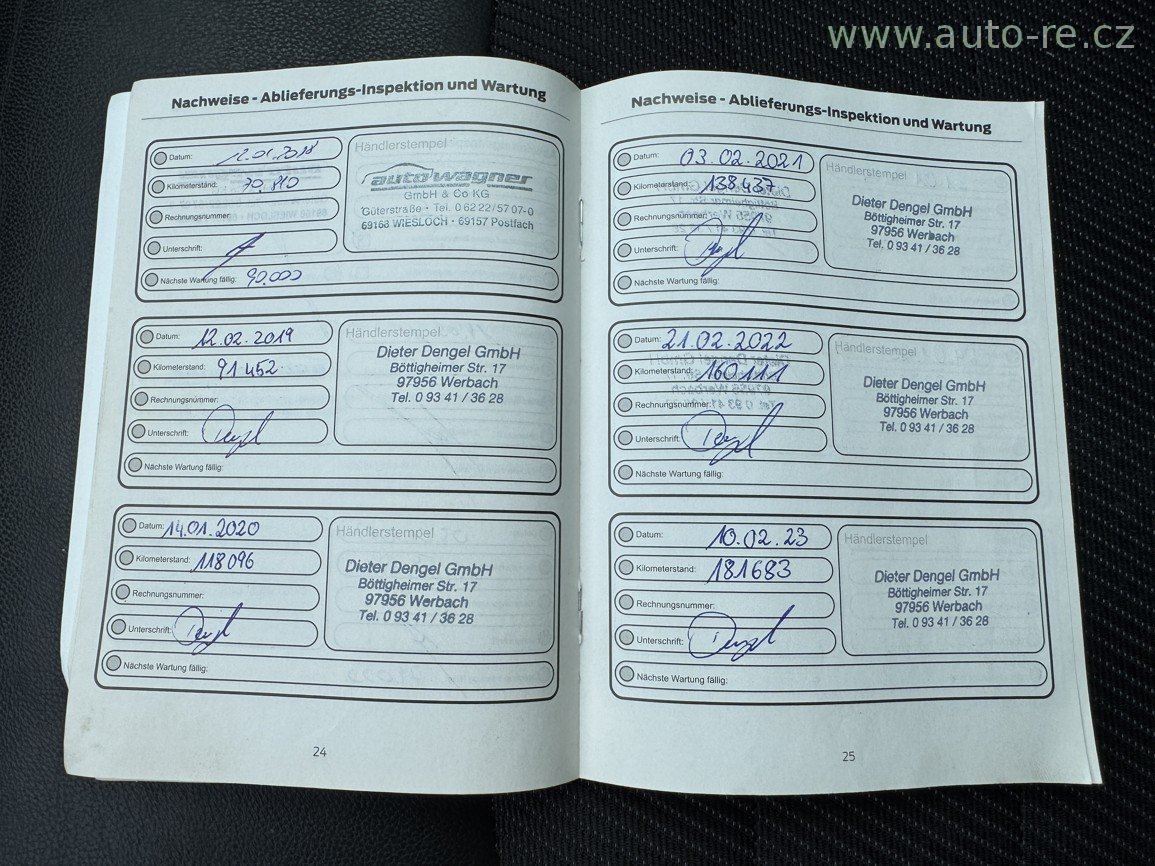 www.auto-re.cz
Nachweise - Ablieferungs-Inspektion und Wartung
Datum: 12.01.2018
Kilometerstand: 70.810
Rechnungsnummer:
Unterschrift:
Nächste Wartung fällig: 90.000
Händlerstempel
autowagner
GmbH & Co KG
Güterstraße · Tel. 0 62 22/57 07-0
69168 WIESLOCH · 69157 Postfach
Datum: 12.02.2019
Kilometerstand: 91 452
Rechnungsnummer:
Unterschrift:
Nächste Wartung fällig:
Händlerstempel
Dieter Dengel GmbH
Böttigheimer Str. 17
97956 Werbach
Tel. 0 93 41 / 36 28
Datum: 14.01.2020
Kilometerstand: 118096
Rechnungsnummer:
Unterschrift:
Nächste Wartung fällig:
Händlerstempel
Dieter Dengel GmbH
Böttigheimer Str. 17
97956 Werbach
Tel. 0 93 41 / 36 28
24
Nachweise - Ablieferungs-Inspektion und Wartung
Datum: 03.02.2021
Kilometerstand: 138437
Rechnungsnummer:
Unterschrift:
Nächste Wartung fällig:
Händlerstempel
Dieter Dengel GmbH
Böttigheimer Str. 17
97956 Werbach
Tel. 0 93 41 / 36 28
Datum: 21.02.2022
Kilometerstand: 160111
Rechnungsnummer:
Unterschrift:
Nächste Wartung fällig:
Händlerstempel
Dieter Dengel GmbH
Böttigheimer Str. 17
97956 Werbach
Tel. 0 93 41 / 36 28
Datum: 10.02.23
Kilometerstand: 181683
Rechnungsnummer:
Unterschrift:
Nächste Wartung fällig:
Händlerstempel
Dieter Dengel GmbH
Böttigheimer Str. 17
97956 Werbach
Tel. 0 93 41 / 36 28
25